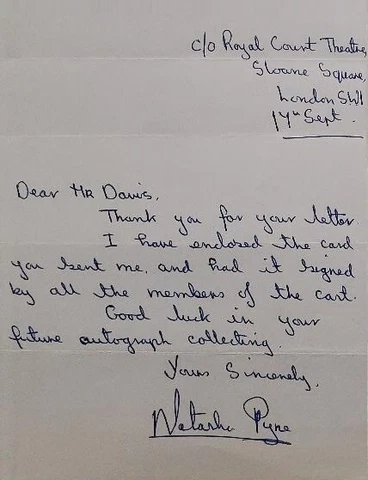 c/o Royal Court Theatre,
Sloane Square,
London SW1
17th Sept.
Dear Mr Davis,
Thank you for your letter.
I have enclosed the card
you sent me, and had it signed
by all the members of the cast.
Good luck in your
future autograph collecting.
Yours Sincerely,
Natasha Pyne